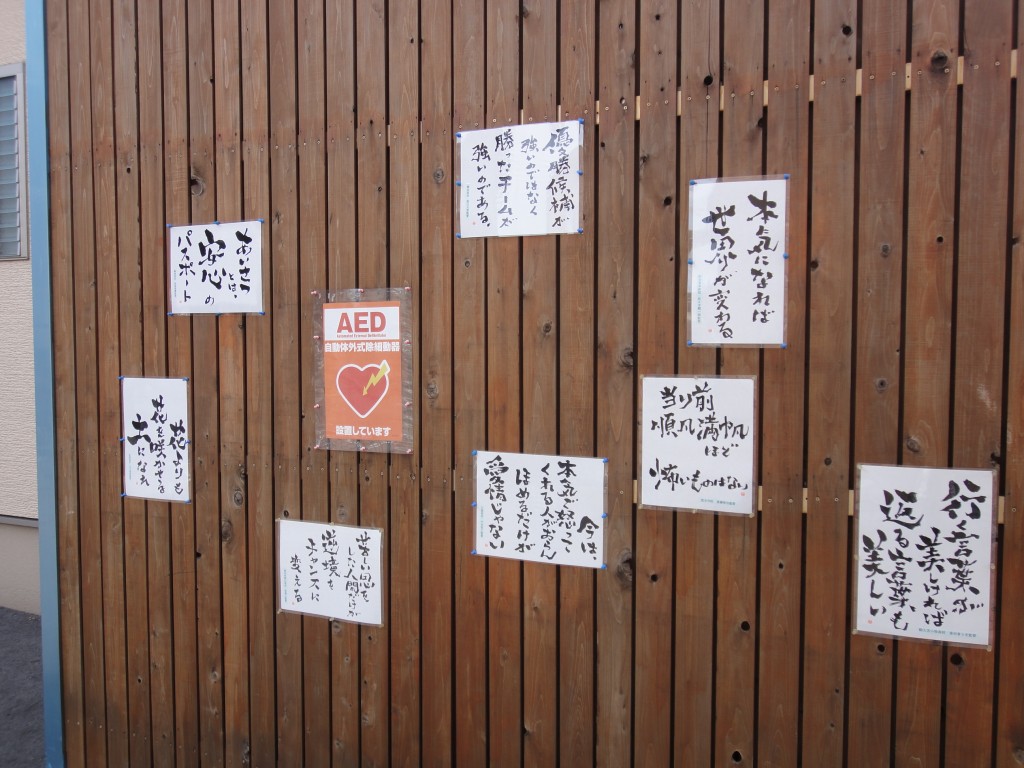 あいさつ
とは、
安心の
パスポート
花よりも
花を咲かせる
土になれ
AED
Automated External Defibrillator
自動体外式除細動器
設置しています
苦しい思いを
した人間だけが
逆境を
チャンスに
変える
優勝候補が
強いのではなく
勝ったチームが
強いのである。
今は、
本気で怒って
くれる人がおらん
ほめるだけが
愛情じゃない
本気になれば
世界が変わる
当り前
順風満帆
ほど
怖いものはない
行く言葉が
美しければ
返る言葉も
美しい